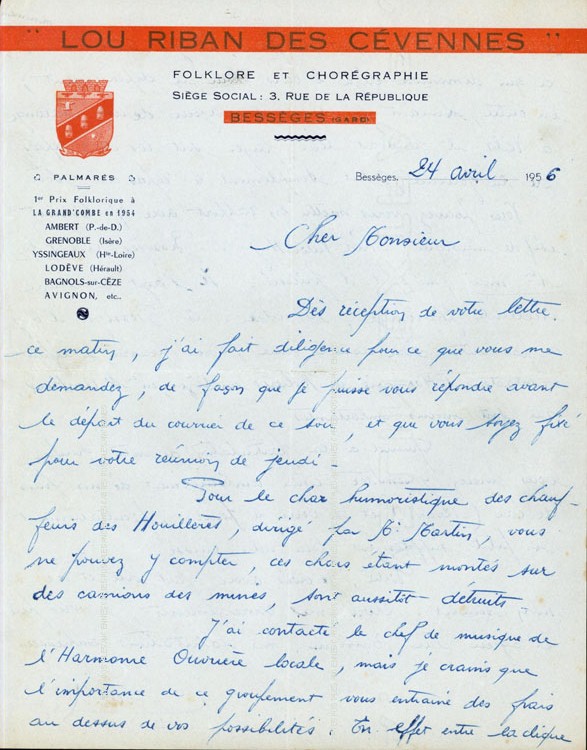 "LOU RIBAN DES CÉVENNES"
FOLKLORE ET CHORÉGRAPHIE
SIÈGE SOCIAL : 3, RUE DE LA RÉPUBLIQUE
BESSÈGES (GARD)
Bessèges, 24 avril 1956
PALMARÈS
1er Prix Folklorique à
LA GRAND'COMBE en 1954
AMBERT (P.-de-D.)
GRENOBLE (Isère)
YSSINGEAUX (Hte-Loire)
LODÈVE (Hérault)
BAGNOLS-sur-CÈZE
AVIGNON, etc..
Cher Monsieur
Dès réception de votre lettre,
ce matin, j'ai fait diligence pour ce que vous me
demandez, de façon que je puisse vous répondre avant
le départ du courrier de ce soir, et que vous soyez fixé
pour votre réunion de jeudi -
Pour le char humoristique des chauf-
feurs des Houillères, dirigé par Mr Martin, vous
ne pouvez y compter, ces chars étant montés sur
des camions des mines, sont aussitôt détruits
J'ai contacté le chef de musique de
l'Harmonie Ouvrière locale, mais je crains que
l'importance de ce groupement vous entraine des frais
au dessus de vos possibilités. En effet entre la clique